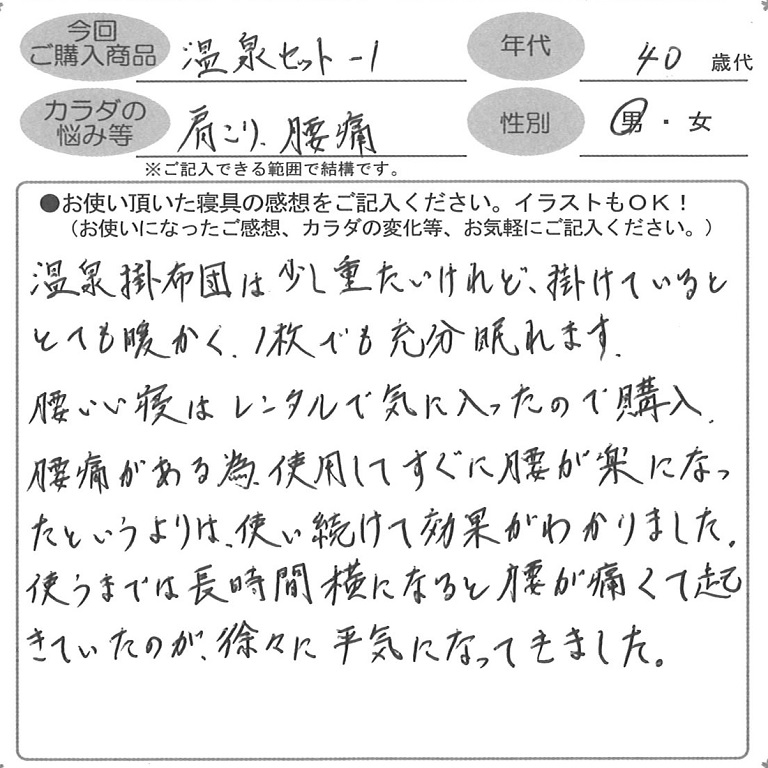 今回
ご購入商品
温泉セット-1
年代
40 歳代
カラダの
悩み等
肩こり、腰痛
性別
男・女
※ご記入できる範囲で結構です。
●お使い頂いた寝具の感想をご記入ください。イラストもOK!
(お使いになったご感想、カラダの変化等、お気軽にご記入ください。)
温泉掛布団は少し重たいけれど、掛けていると
とても暖かく、1枚でも充分眠れます。
腰いい寝はレンタルで気に入ったので購入。
腰痛がある為、使用してすぐに腰が楽になっ
たというよりは、使い続けて効果がわかりました。
使うまでは長時間横になると腰が痛くて起
きていたのが、徐々に平気になってきました。